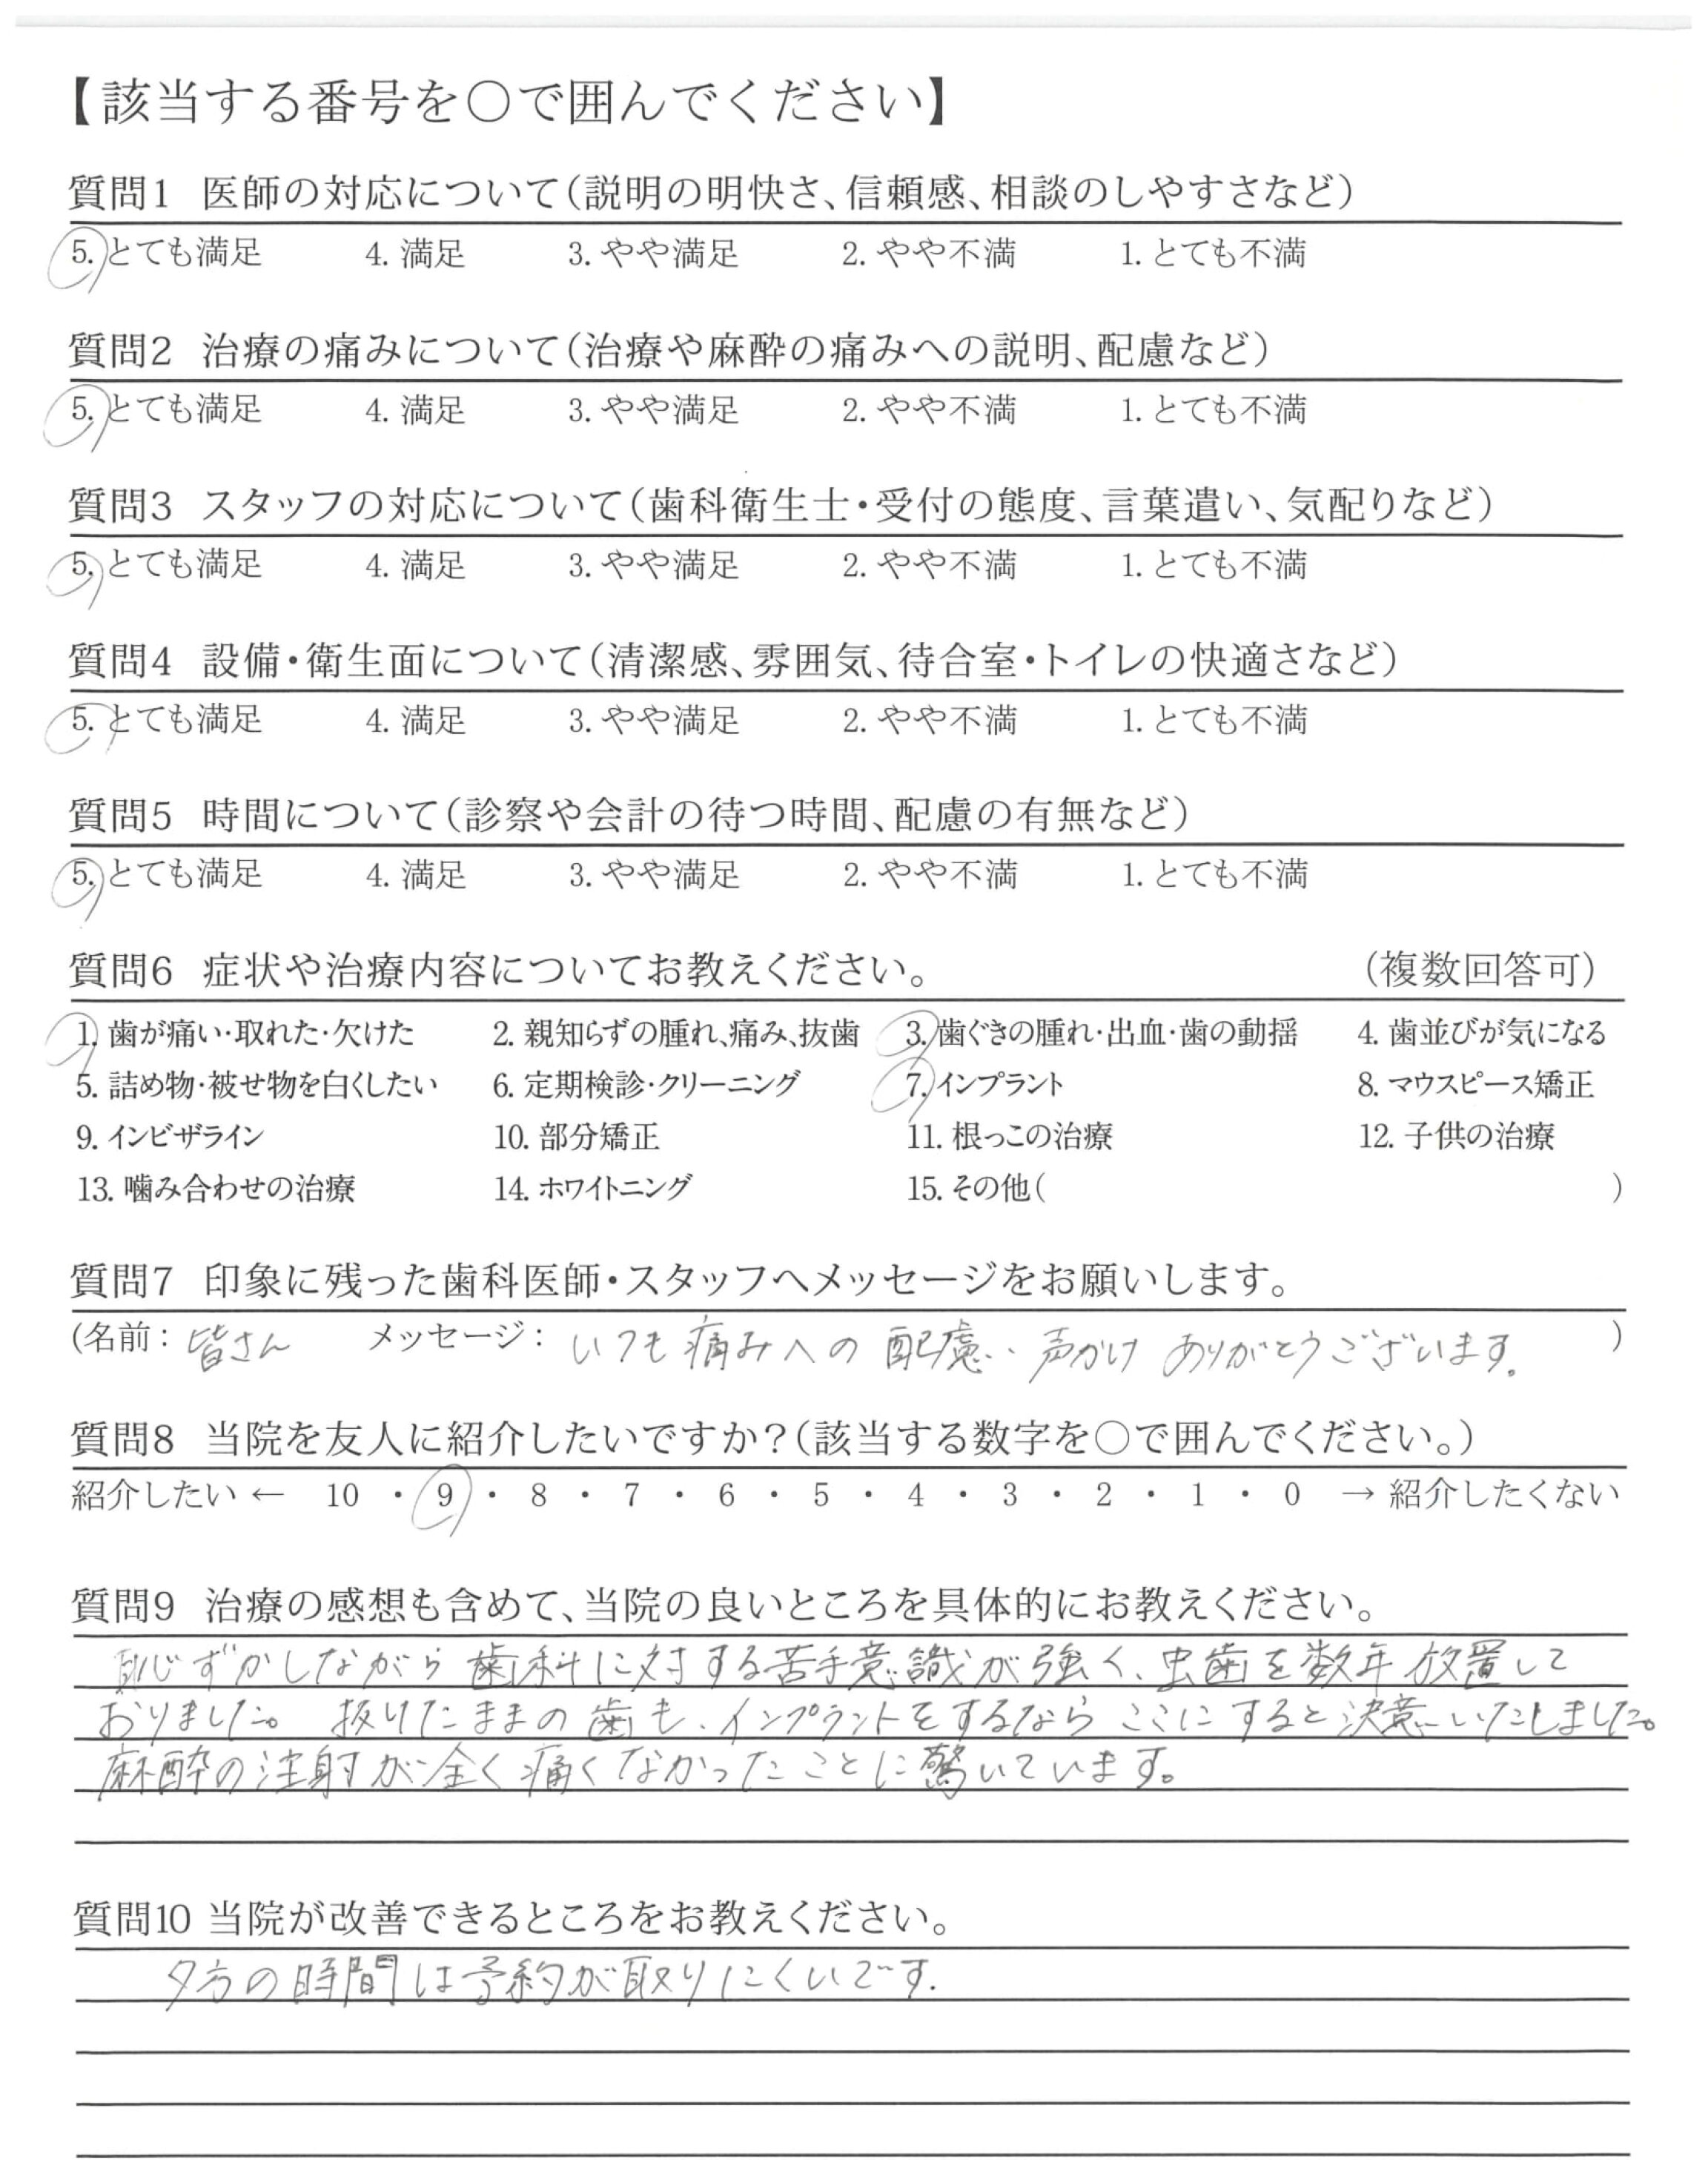 【該当する番号を○で囲んでください】
質問1 医師の対応について(説明の明快さ、信頼感、相談のしやすさなど)
5. とても満足 4. 満足 3. やや満足 2. やや不満 1. とても不満
質問2 治療の痛みについて(治療や麻酔の痛みへの説明、配慮など)
5. とても満足 4. 満足 3. やや満足 2. やや不満 1. とても不満
質問3 スタッフの対応について(歯科衛生士・受付の態度、言葉遣い、気配りなど)
5. とても満足 4. 満足 3. やや満足 2. やや不満 1. とても不満
質問4 設備・衛生面について(清潔感、雰囲気、待合室・トイレの快適さなど)
5. とても満足 4. 満足 3. やや満足 2. やや不満 1. とても不満
質問5 時間について(診察や会計の待つ時間、配慮の有無など)
5. とても満足 4. 満足 3. やや満足 2. やや不満 1. とても不満
質問6 症状や治療内容についてお教えください。 (複数回答可)
1. 歯が痛い・取れた・欠けた 2. 親知らずの腫れ、痛み、抜歯 3. 歯ぐきの腫れ・出血・歯の動揺 4. 歯並びが気になる
5. 詰め物・被せ物を白くしたい 6. 定期検診・クリーニング 7. インプラント 8. マウスピース矯正
9. インビザライン 10. 部分矯正 11. 根っこの治療 12. 子供の治療
13. 噛み合わせの治療 14. ホワイトニング 15. その他( )
質問7 印象に残った歯科医師・スタッフへメッセージをお願いします。
(名前: 皆さん メッセージ: いつも痛みへの配慮、声かけ ありがとうございます。 )
質問8 当院を友人に紹介したいですか?(該当する数字を○で囲んでください。)
紹介したい ← 10 ・ 9 ・ 8 ・ 7 ・ 6 ・ 5 ・ 4 ・ 3 ・ 2 ・ 1 ・ 0 → 紹介したくない
質問9 治療の感想も含めて、当院の良いところを具体的にお教えください。
恥ずかしながら歯科に対する苦手意識が強く、虫歯を数年放置して
おりました。抜けたままの歯も、インプラントをするならここにすると決意いたしました。
麻酔の注射が全く痛くなかったことに驚いています。
質問10 当院が改善できるところをお教えください。
夕方の時間は予約が取りにくいです.